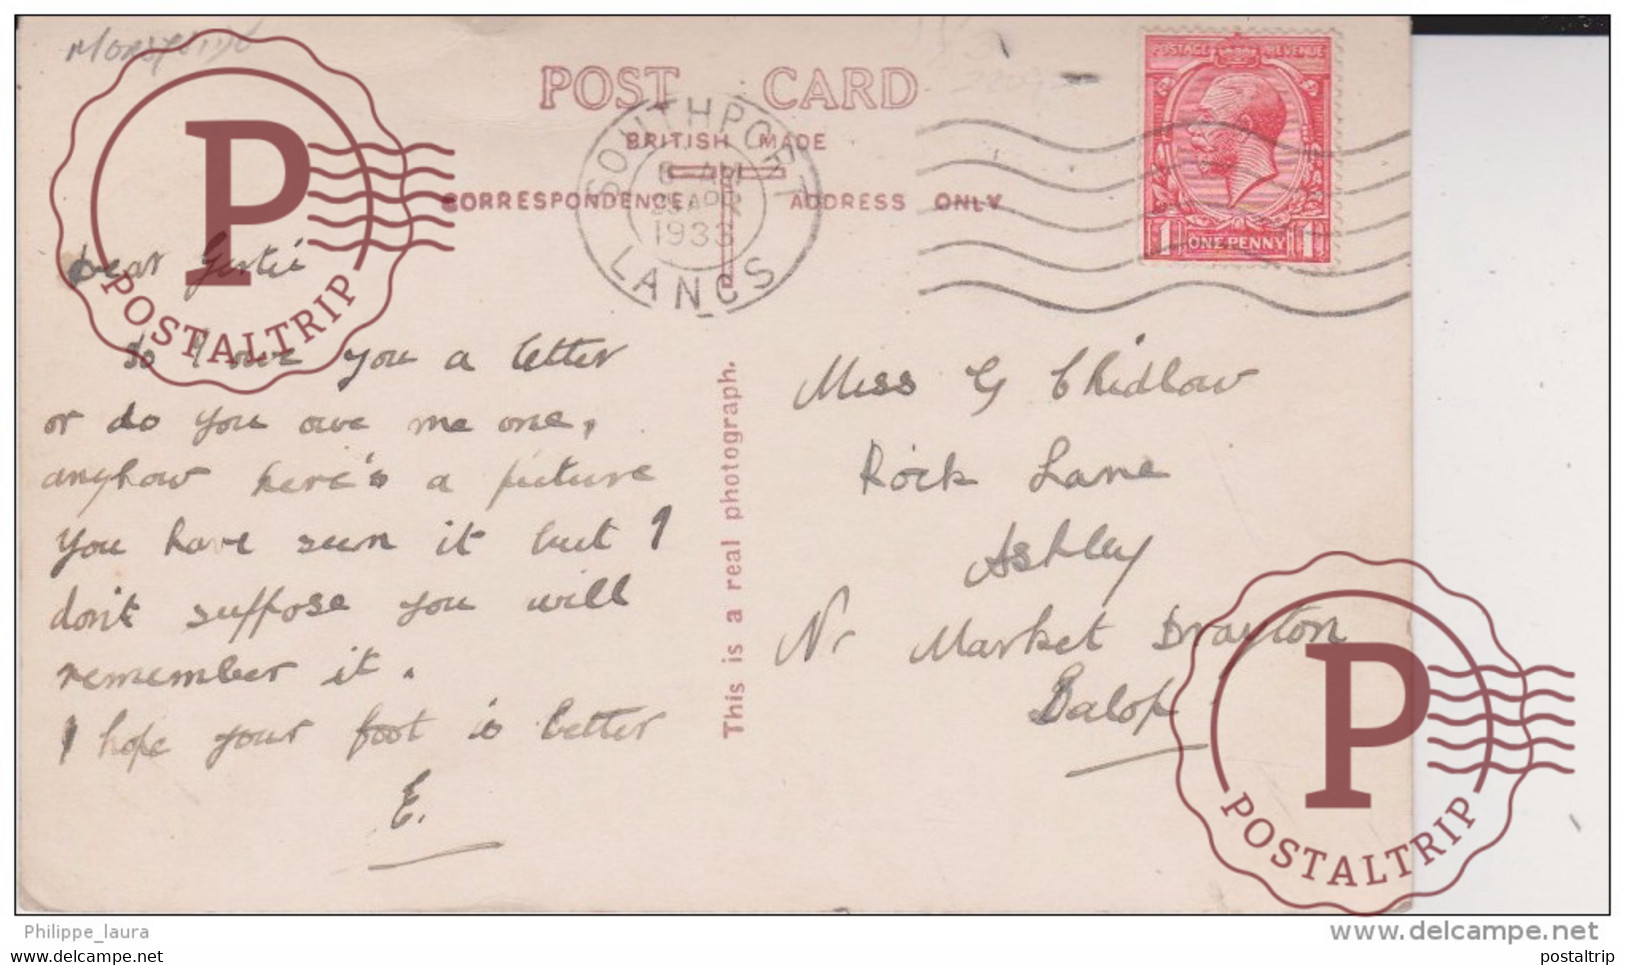 POST CARD
BRITISH MADE
CORRESPONDENCE
ADDRESS ONLY
SOUTHPORT
AM
25 APR
1933
LANCS
POSTAGE REVENUE
1 ONE PENNY 1
Dear Gertie
do I owe you a letter
or do you owe me one,
anyhow here's a picture
You have seen it but I
don't suppose you will
remember it.
I hope your foot is better
E.
This is a real photograph.
Miss G Chidlow
Rock Lane
Ashley
Nr Market Drayton
Salop
P
POSTALTRIP
P
POSTALTRIP
Philippe_laura
www.delcampe.net
postaltrip
www.delcampe.net